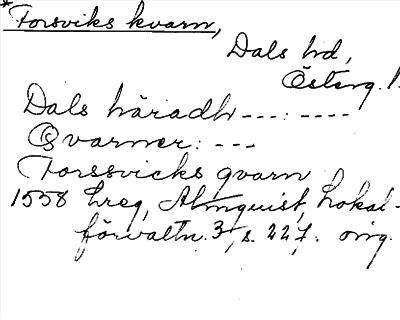 *Forsviks kvarn,
Dals hd,
Österg. l.
Dals häradh ---:----
Qvarner: ---
Forssvicks qvarn
1558 Ereg, Almquist, Lokal-
förvaltn. 3, s. 227. orig.